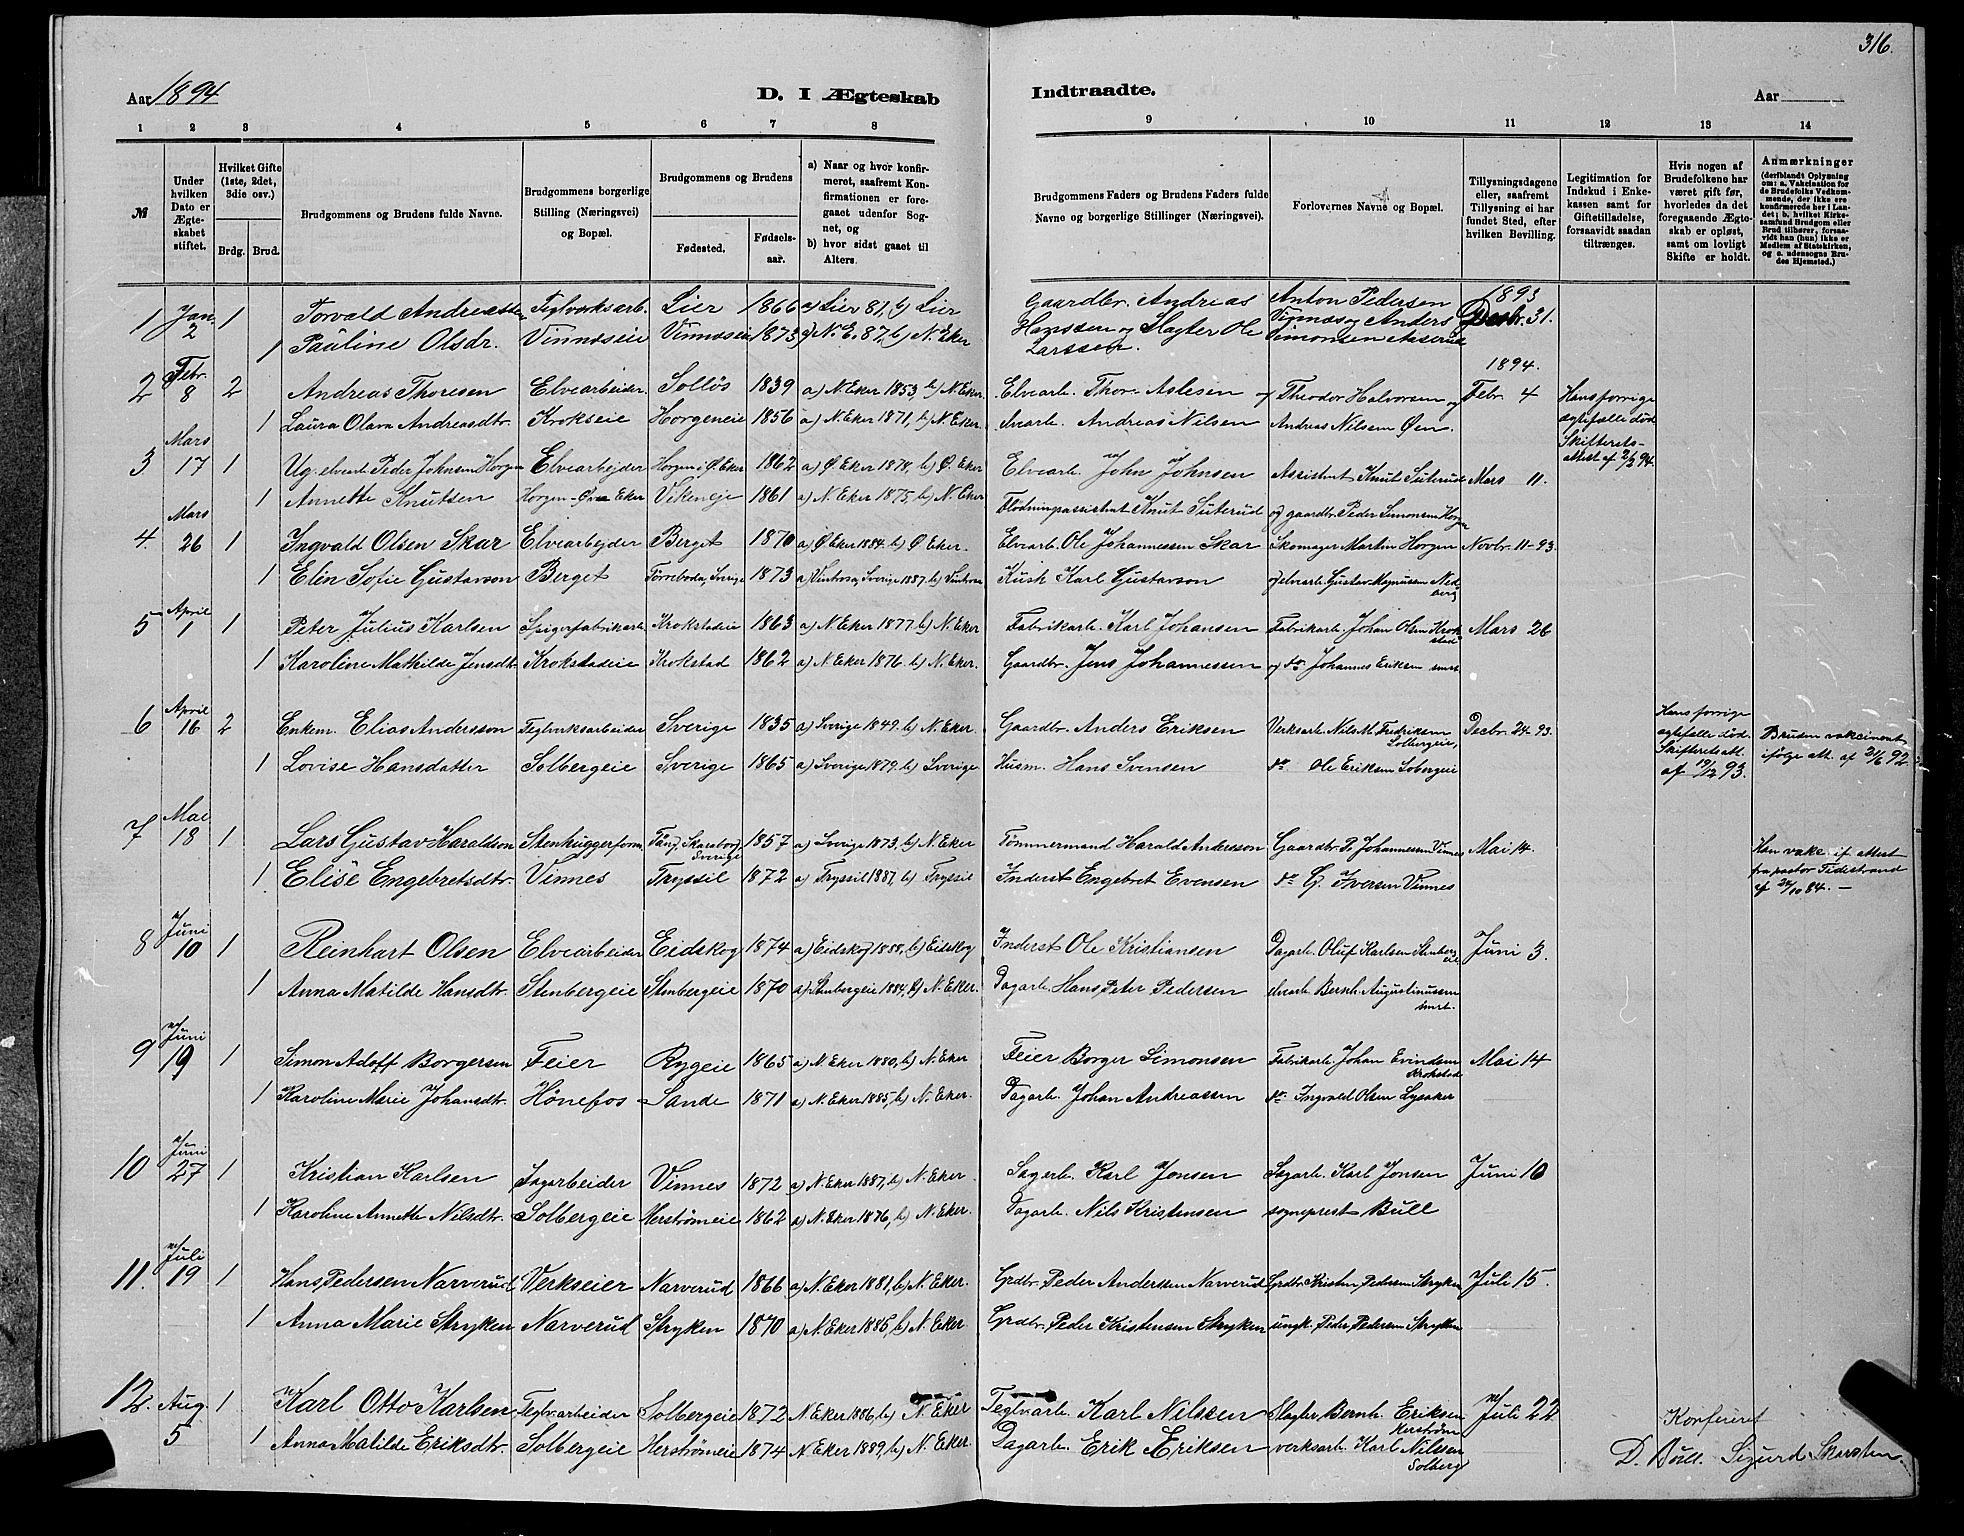 316.
Aar 1894
D. I Ægteskab Indtraadte.
Aar
1 2 3 4 5 6 7 8 9 10 11 12 13 14
№
Under hvilken Dato er Ægteskabet stiftet.
Hvilket Gifte (1ste, 2det, 3die osv.)
Brdg. Brud.
Brudgommens og Brudens fulde Navne.
Brudgommens borgerlige Stilling (Næringsvei) og Bopæl.
Brudgommens og Brudens
Fødested. Fødselsaar.
a) Naar og hvor konfirmeret, saafremt Konfirmationen er foregaaet udenfor Sognet, og
b) hvor sidst gaaet til Alters.
Brudgommens Faders og Brudens Faders fulde Navne og borgerlige Stillinger (Næringsvei).
Forlovernes Navne og Bopæl.
Tillysningsdagene eller, saafremt Tillysning ei har fundet Sted, efter hvilken Bevilling.
Legitimation for Indskud i Enkekassen samt for Giftetilladelse, forsaavidt saadan tiltrænges.
Hvis nogen af Brudefolkene har været gift før, hvorledes da det foregaaende Ægteskab er opløst, samt om lovligt Skifte er holdt.
Anmærkninger (deriblandt Oplysning om: a. Vakcination for de Brudefolks Vedkommende, der ikke ere konfirmerede her i Landet; b. hvilket Kirkesamfund Brudgom eller Brud tilhører, forsaavidt han (hun) ikke er Medlem af Statskirken, og c. udensogns Brudes Hjemsted.)
1 Jan. 2 1 Torvald Andreassen Teglverksarb. Lier 1866 a) Lier 81, b) Lier Gaardbr. Andreas Anton Pedersen 1893
1 Pauline Olsdr. Vinnæseie Vinnæseie 1873 a) N. E. 87, b) N. Eker Hanssen og Slagter Ole Vinnæs og Anders Decbr. 31.
Larssen. Simonsen Aaserud
1894.
2 Febr. 8 2 Andreas Thoresen Elvearbeider Solløs 1839 a) N. Eker 1853, b) N. Eker. Elvearb. Thor Aslesen og Theodor Halvorsen og Febr. 4 Hans forrige
1 Laura Olava Andreasdtr. Krokseie Horgeneie 1856 a) N. Eker 1871, b) N. Eker. Elvearb. Andreas Nilsen Andreas Nilsen Øen. ægtefælle død.
Skifterets-
attest af 2/2 94.
3 Mars 17 1 Ug. elvearb. Peder Johnsen Horgen Elvearbeider Horgen i Ø. Eker 1862 a) Ø. Eker 1878, b) Ø. Eker Elvearb. John Johnsen Assistent Knut Suterud Mars 11.
1 Annette Knutsen Horgen - Øvre Eker Vikeneje 1861 a) N. Eker 1875, b) N. Eker Flödningsassistent Knut Suterud og gaardbr. Peder Simonsen Horgen
4. Mars 26 1 Ingvald Olsen Skar Elvearbejder Berget 1870 a) Ø Eker 1884. b) Ø Eker. Elvearb. Ole Johannessen Skar Skomager Martin Horgen Novbr. 11-93.
1 Elin Sofie Gustavson Berget Törreboda, Sverige 1873 a) Vintrosa, Sverige 1887. b) Vintrosa Kusk Karl Gustavson og elvearb. Gustav Magnussen Nedberg
5 April 1 1 Peter Julius Karlsen Spigerfabrikarb. Krokstadeie 1863 a) N. Eker 1877. b) N. Eker Fabrikarb. Karl Johansen Fabrikarb. Johan Olsen Krokstad Mars 26
1 Karoline Mathilde Jensdtr. Krokstadeie Krokstad 1862 a) N. Eker 1876. b) N. Eker. Gaardbr. Jens Johannessen og do Johannes Eriksen smst
6 April 16 2 Enkem. Elias Andersson Teglverksarbeider Sverige 1835 a) Sverige 1849. b) N. Eker. Gaardbr. Anders Eriksen Verksarb. Nils Fredriksen Solbergeie, Decbr. 24-93. Hans forrige ægtefælle død. Skifteretsatt. af 19/12 93.
1 Lovise Hansdatter Solbergeie Sverige 1865 a) Sverige 1879. b) Sverige Husm. Hans Svensen do Ole Eriksen Solbergeie Bruden vakcineret ifølge att. af 21/6 92.
7 Mai 18 1 Lars Gustav Haraldson Stenhuggerform. Tång, Skaraborg, Sverige 1857 a) Sverige 1873, b) N. Eker Tømmermand Harald Andersson Gaardbr. P. Johannessen Vinnes Mai 14.
1 Elise Engebretsdtr. Vinnes Tryssil 1872 a) Tryssil 1887, b) Tryssil Inderst Engebret Evensen do G. Iversen Vinnes Han vakc. if. attest fra pastor Tidistrand af 24/10 84. —
8 Juni 10 1 Reinhart Olsen Elvearbeider Eidskog 1874 a) Eidskog 1888, b) Eidskog Inderst Ole Kristiansen Dagarb. Oluf Karlsen Stenbergeie Juni 3.
1 Anna Matilde Hansdtr. Stenbergeie Stenbergeie 1870 a) Stenbergeie 1884, b) N. Eker. Dagarb. Hans Peter Pedersen elvearb. Bernh. Augustinussen smst.
9 Juni 19 1 Simon Adolf Borgersen Feier Rygeie 1865 a) N. Eker 1880, b) N. Eker Feier Borger Simonsen Fabrikarb. Johan Evindsen Krokstad Mai 14
1 Karoline Marie Johansdtr. Hönefos Sande 1871 a) N. Eker 1885, b) N. Eker. Dagarb. Johan Andreassen do. Ingvald Olsen Lysaker
10 Juni 27 1 Kristian Karlsen Sagarbeider Vinnes 1872 a) N. Eker 1887, b) N. Eker Sagarb. Karl Jonsen Sagarb. Karl Jonsen Juni 10
1 Karoline Annette Nilsdtr. Solbergeie Herströmeie 1862 a) N. Eker 1876, b) N. Eker. Dagarb. Nils Kristensen sogneprest Bull
11. Juli 19 1 Hans Pedersen Narverud Verkseier Narverud 1866 a) N. Eker 1881, b) N. Eker. Grdbr. Peder Anderssen Narverud Grdbr. Kristen Pedersen Stryken Juli 15.
1 Anna Marie Stryken Narverud Stryken 1870 a) N. Eker 1885, b) N. Eker. Grdbr. Peder Kristensen Stryken ungk. Peder Pedersen Stryken
12. Aug. 5 1 Karl Otto Karlsen Teglvarbeider Solbergeie 1872 N. Eker 1886, b) N. Eker Teglvarb. Karl Nilssen Slagter Bernh. Eriksen Herström Juli 22
1 Anna Matilde Eriksdtr. Solbergeie Herströmeie 1874 N. Eker 1889, b) N. Eker. Dagarb. Erik Eriksen verksarb. Karl Nilssen Solberg
Konfereret
D. Bull. Sigurd Skarsten